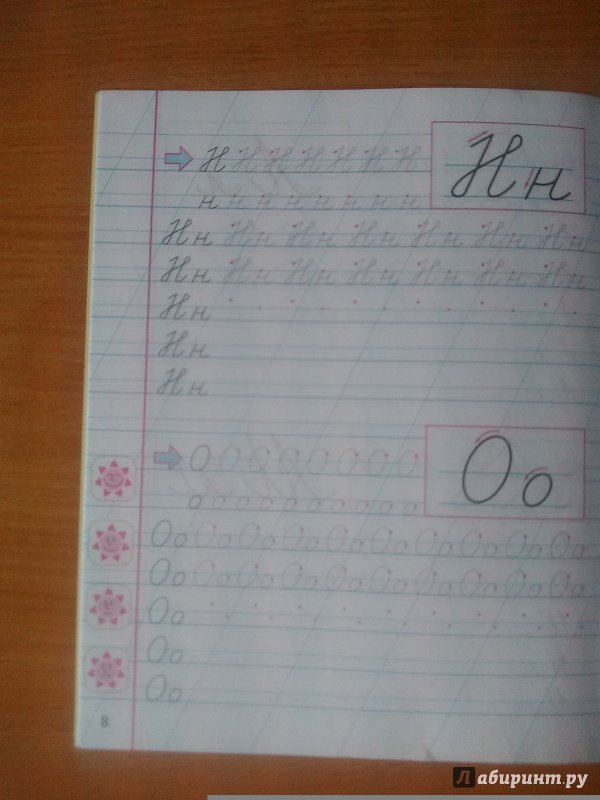 Н Н Н Н Н Н Н
Нн
н н н н н н н н
Нн Нн Нн Нн Нн Нн Нн
Нн Нн Нн Нн Нн Нн Нн
Нн
Нн
Нн
О О О О О О О О
Оо
о о о о о о о о о о о
Оо Оо Оо Оо Оо Оо Оо Оо Оо Оо
Оо Оо Оо Оо Оо Оо Оо Оо Оо Оо
Оо
Оо
Оо
8
Лабиринт.ру